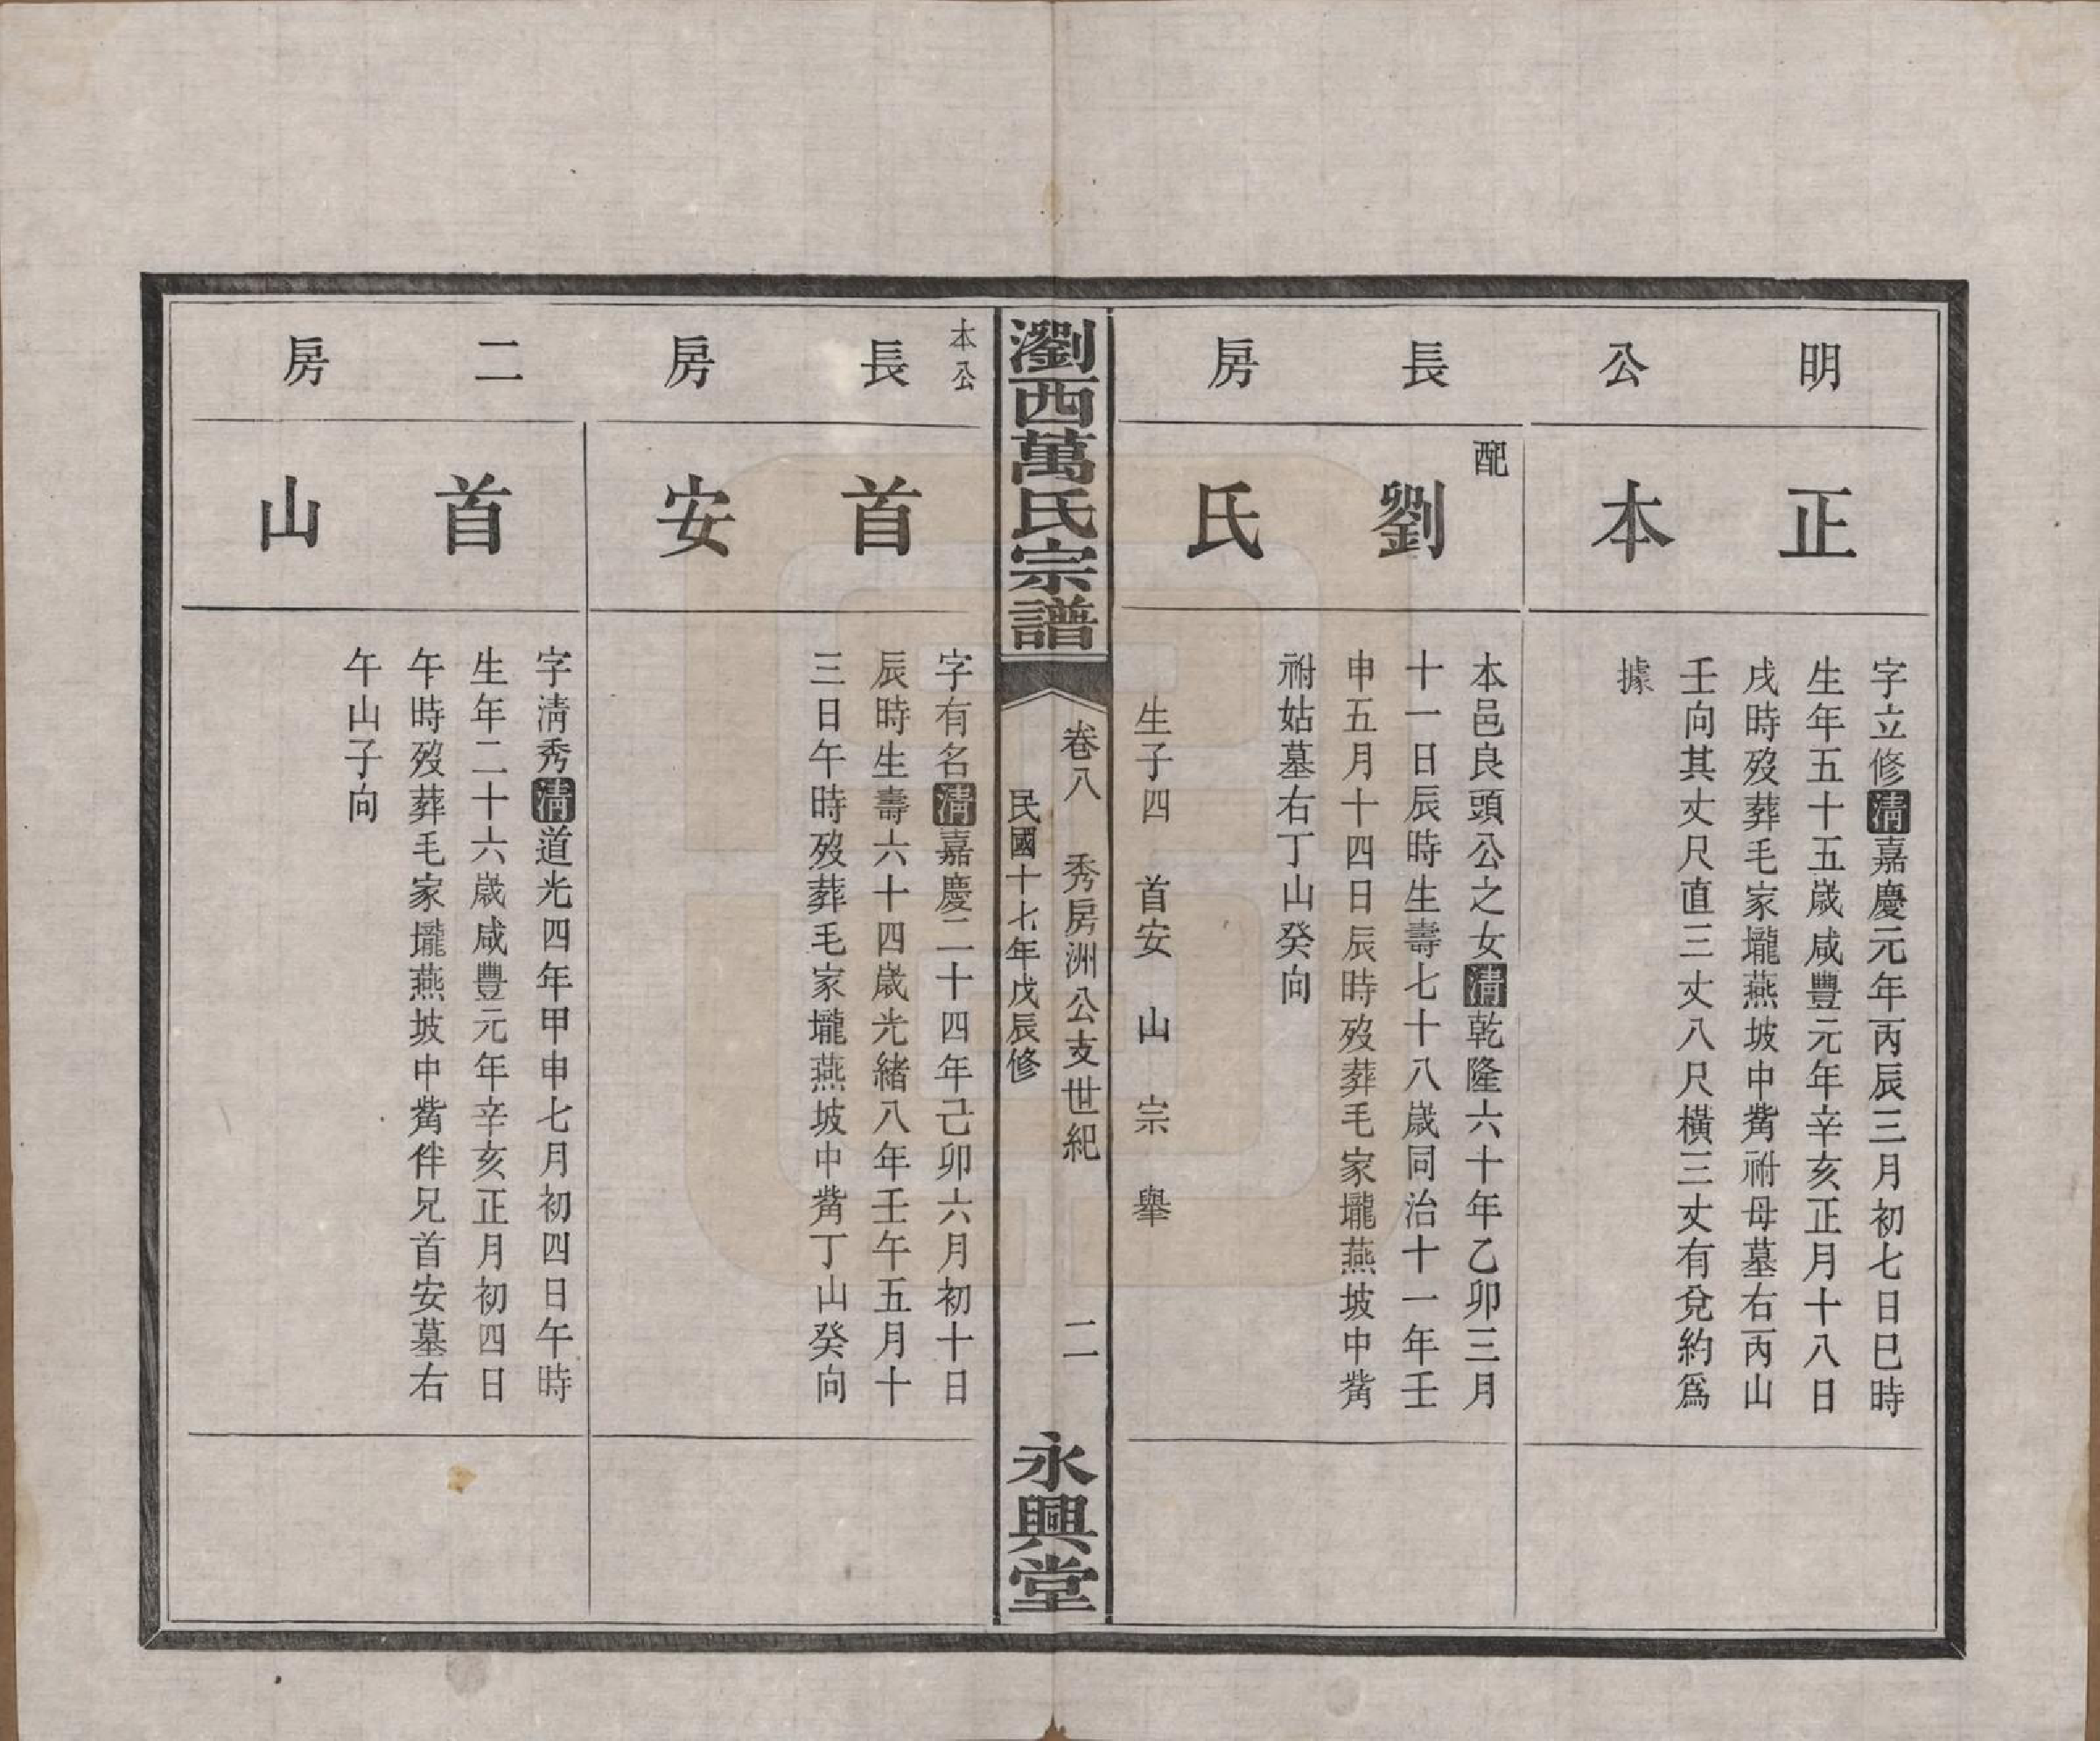 明公
正本
字立修清嘉慶元年丙辰三月初七日巳時
生年五十五歲咸豐元年辛亥正月十八日
戌時歿葬毛家壠燕坡中觜祔母墓右丙山
壬向其丈尺直三丈八尺橫三丈有兌約爲
據
長房
配
劉氏
本邑良頭公之女清乾隆六十年乙卯三月
十一日辰時生壽七十八歲同治十一年壬
申五月十四日辰時歿葬毛家壠燕坡中觜
祔姑墓右丁山癸向
生子四 首安 山 宗 舉
瀏西萬氏宗譜
卷八 秀房洲公支世紀 二
民國十七年戊辰修
永興堂
本公
長房
首安
字有名清嘉慶二十四年己卯六月初十日
辰時生壽六十四歲光緒八年壬午五月十
三日午時歿葬毛家壠燕坡中觜丁山癸向
二房
首山
字淸秀清道光四年甲申七月初四日午時
生年二十六歲咸豐元年辛亥正月初四日
午時歿葬毛家壠燕坡中觜伴兄首安墓右
午山子向